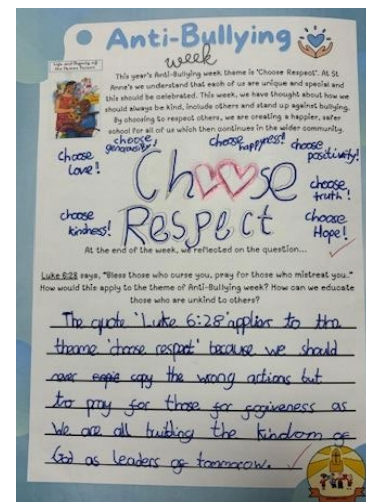 Anti-Bullying
week
Life and Dignity of
the Human Person
This year's Anti-Bullying week theme is 'Choose Respect'. At St
Anne's we understand that each of us are unique and special and
this should be celebrated. This week, we have thought about how we
should always be kind, include others and stand up against bullying.
By choosing to respect others, we are creating a happier, safer
school for all of us which then continues in the wider community.
choose generousity!
choose happyness!
choose positivity!
choose love!
Choose
choose truth!
choose kindness!
Respect
choose Hope!
At the end of the week, we reflected on the question...
Luke 6:28 says, "Bless those who curse you, pray for those who mistreat you."
How would this apply to the theme of Anti-Bullying week? How can we educate
those who are unkind to others?
The quote 'Luke 6:28' applies to the
theame 'choose respect' because we should
never copy the wrong actions but
to pray for those for forgiveness as
we are all building the kindom of
God as leaders of tommorow.